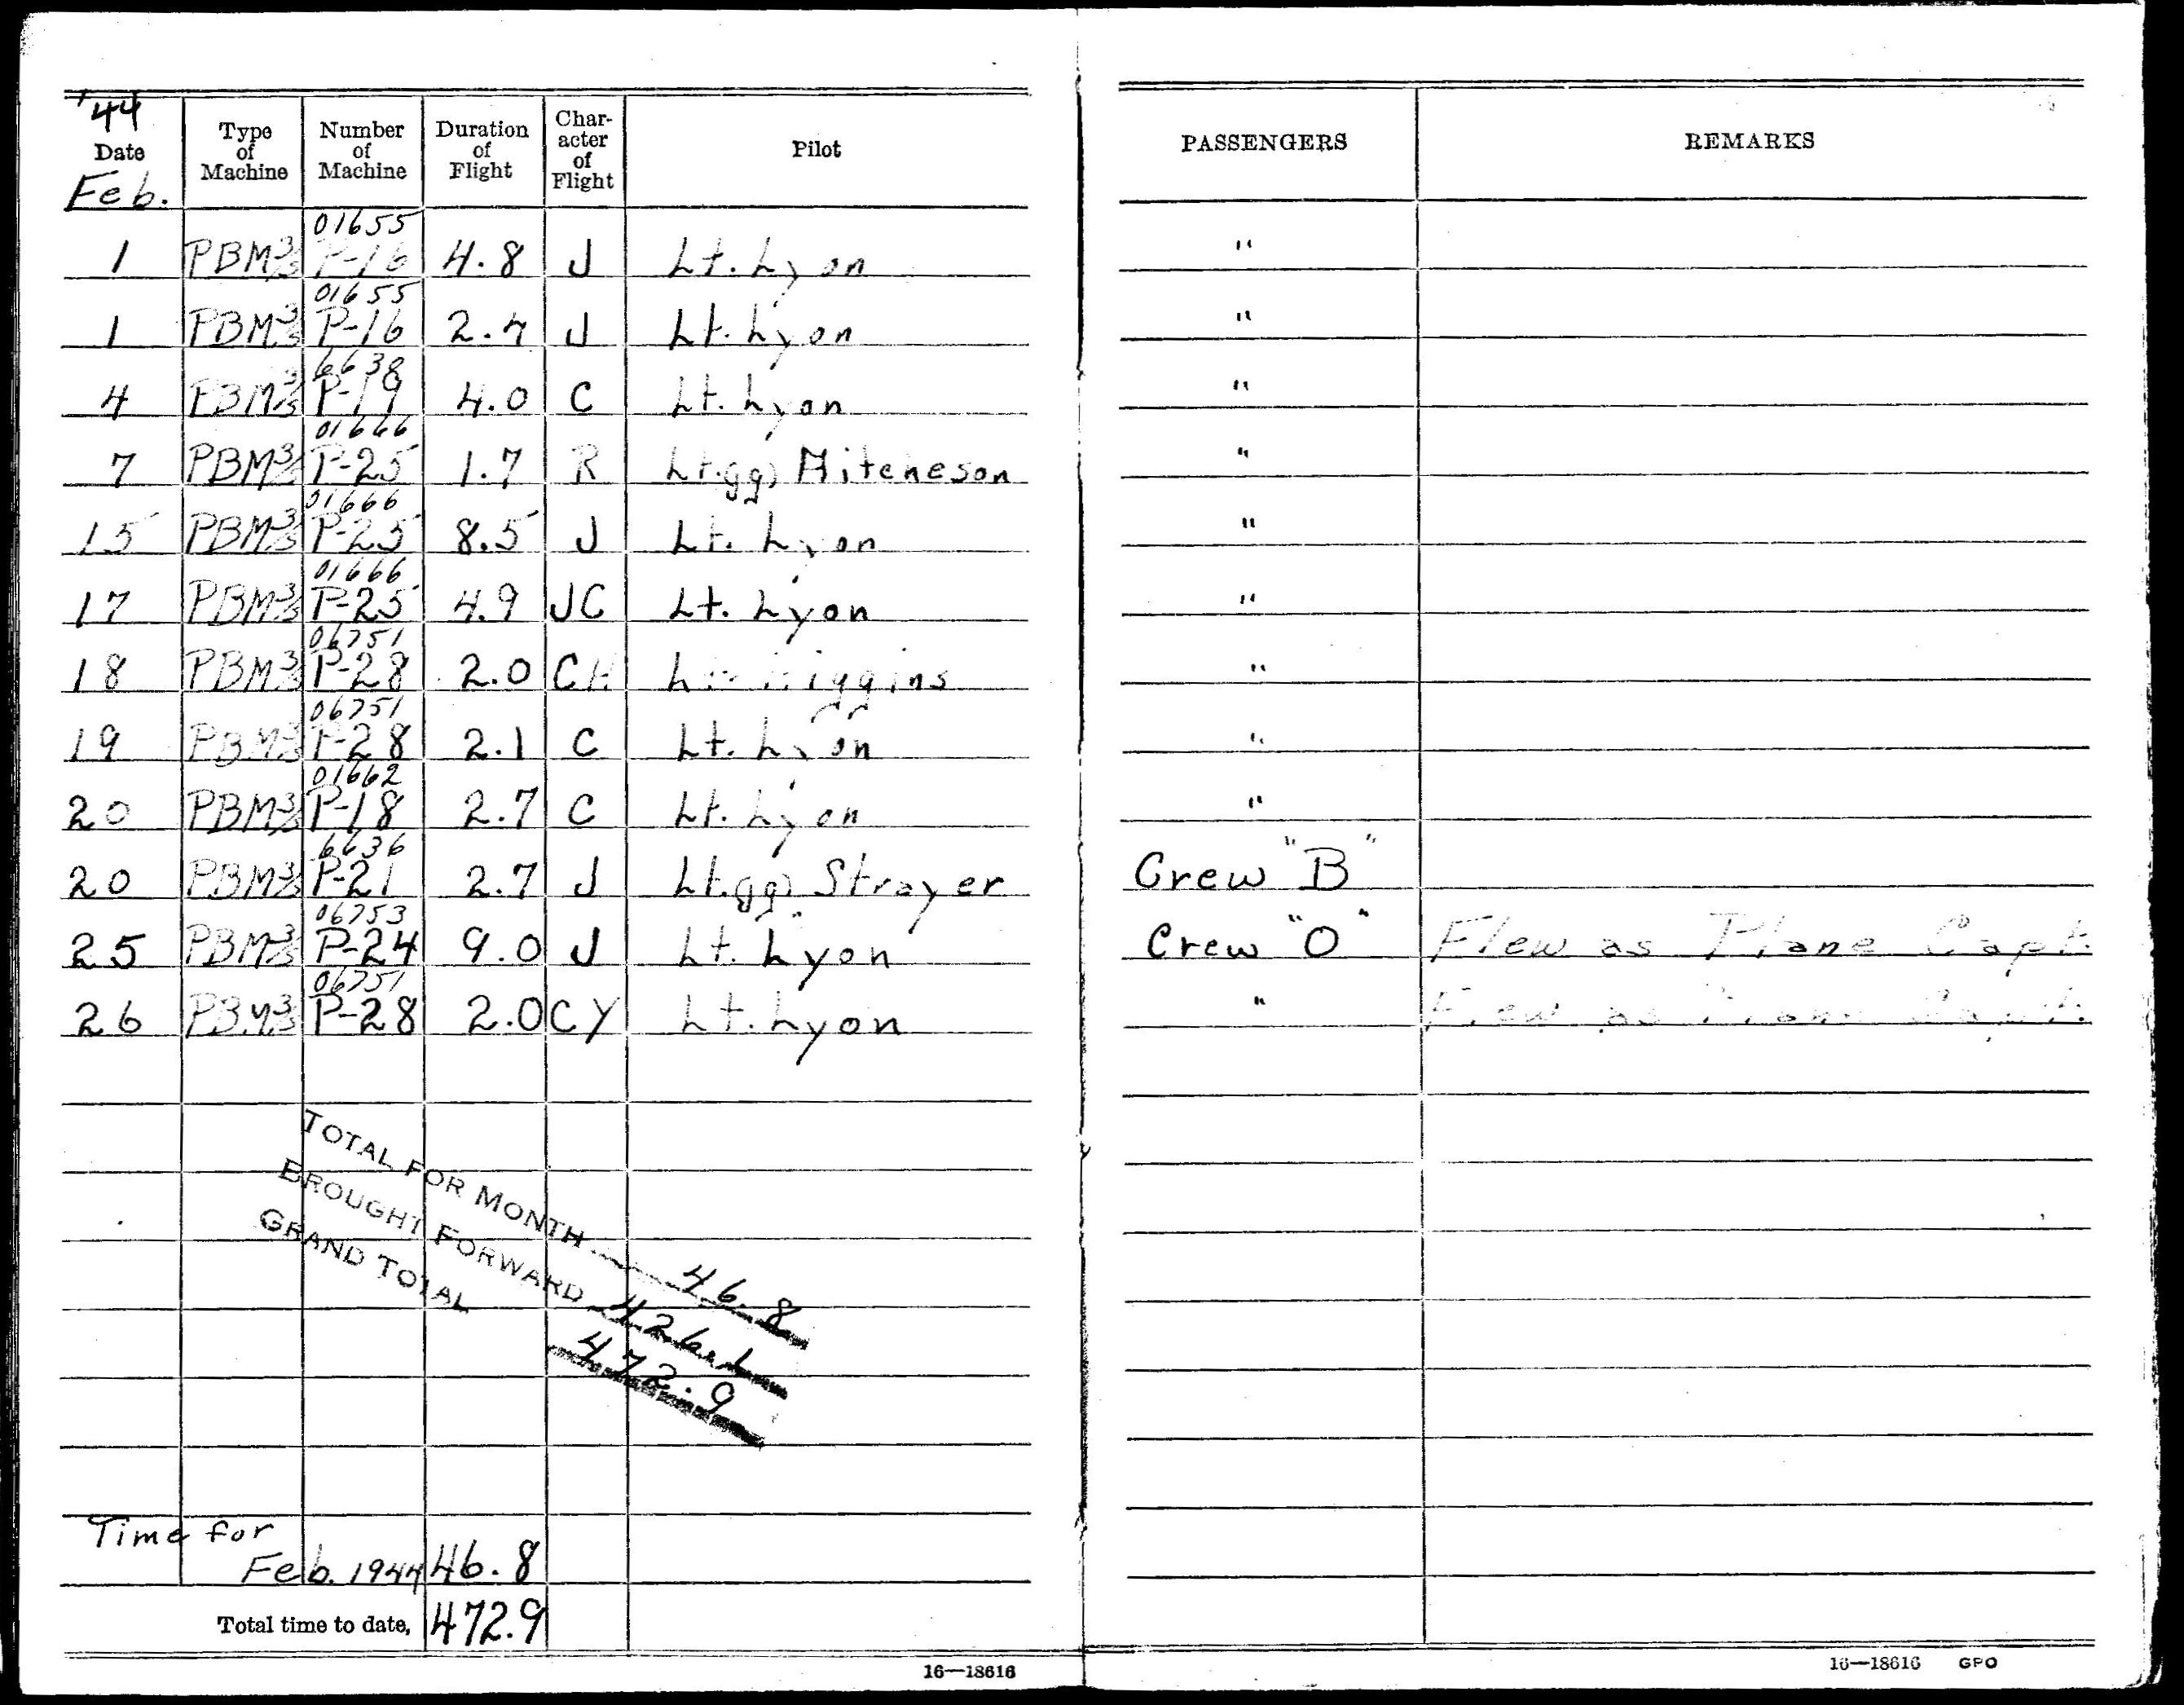 '44
Date
Feb.
Type of Machine
Number of Machine
Duration of Flight
Character of Flight
Pilot
PASSENGERS
REMARKS
01655
1 PBM3S P-16 4.8 J Lt. Lyon "
01655
1 PBM3S P-16 2.4 J Lt. Lyon "
6638
4 PBM3S P-19 4.0 C Lt. Lyon "
01666
7 PBM3S P-25 1.7 R Lt.(jg) "
01666
15 PBM3S P-25 8.5 J Lt. Lyon "
01666
17 PBM3S P-25 4.9 JC Lt. Lyon "
06751
18 PBM3S P-28 2.0 CH Lt. Higgins "
06751
19 PBM3S P-28 2.1 C Lt. Lyon "
01662
20 PBM3S P-18 2.7 C Lt. Lyon "
6636
20 PBM3S P-21 2.7 J Lt.(jg) Strayer Crew "B"
06753
25 PBM3S P-24 9.0 J Lt. Lyon Crew "O" Flew as Plane Capt.
06751
26 PBM3S P-28 2.0 CY Lt. Lyon " Flew as Plane Capt.
TOTAL FOR MONTH 46.8
BROUGHT FORWARD 426.1
GRAND TOTAL 472.9
Time for
Feb. 1944 46.8
Total time to date, 472.9
16—18616
16—18616 GPO